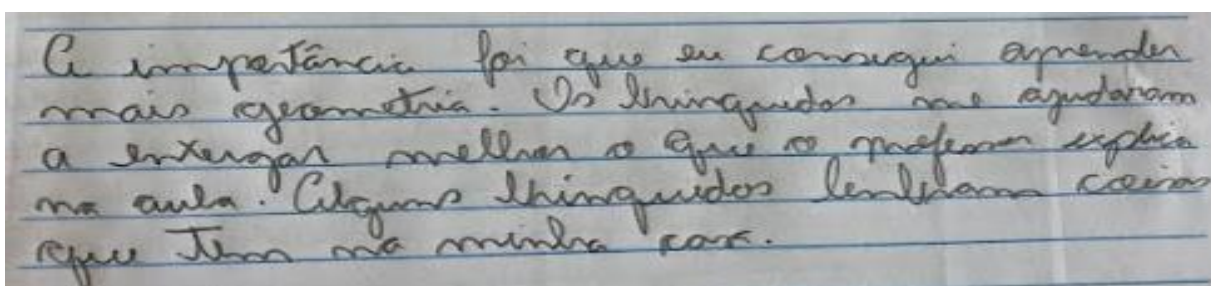 A importância foi que eu consegui aprender
mais geometria. Os brinquedos me ajudaram
a enxergar melhor o que o professor explica
na aula. Alguns brinquedos lembram coisas
que tem na minha casa.